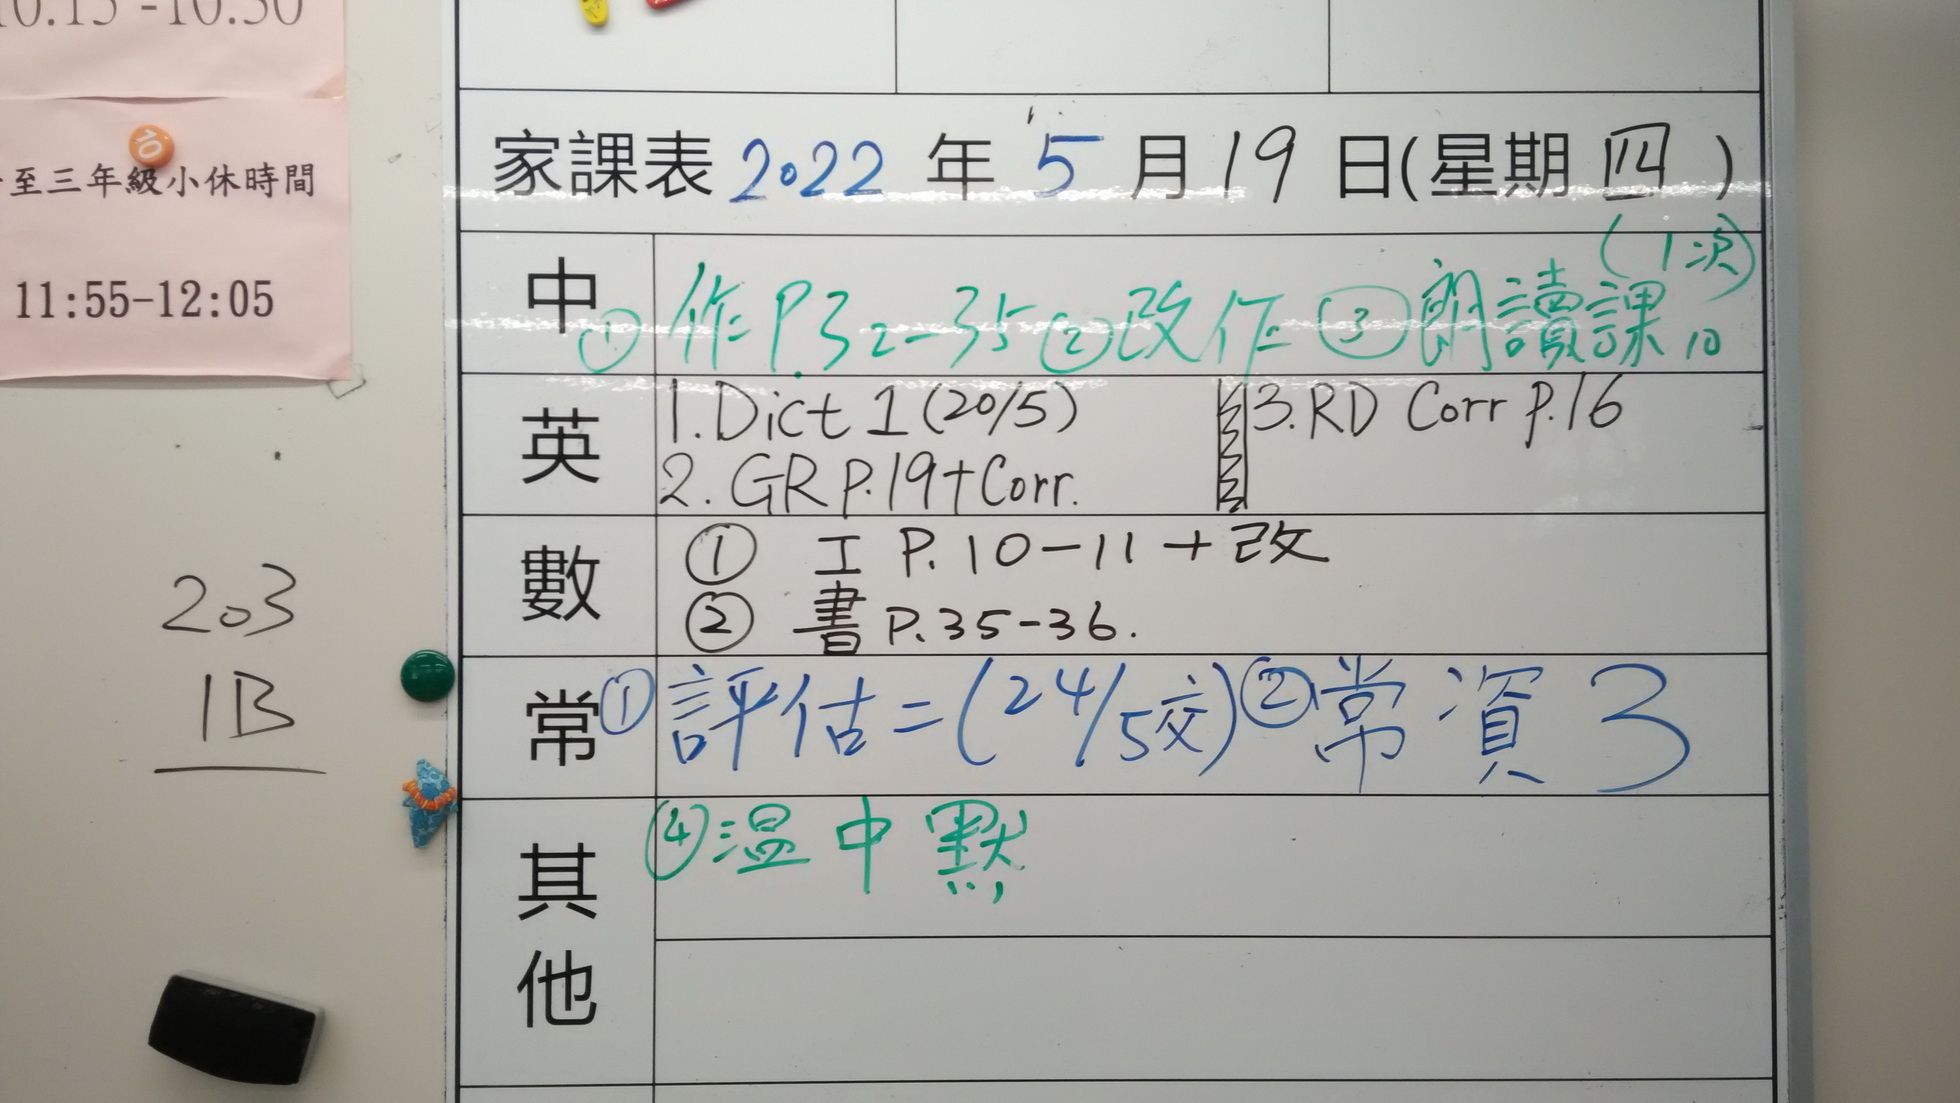 10:15-10:30
至三年級小休時間
11:55-12:05
10
203
1B
家課表 2022 年 5 月 19 日(星期四)
中 ①作P.32-35 ②改作 ③朗讀課10 (1次)
英 1.Dict 1 (20/5) 3.RD Corr P.16
2. GR P.19+Corr.
數 ① 工 P.10-11 + 改
② 書 P.35-36.
常 ①評估二(24/5交) ②常資3
其他 ④溫中默